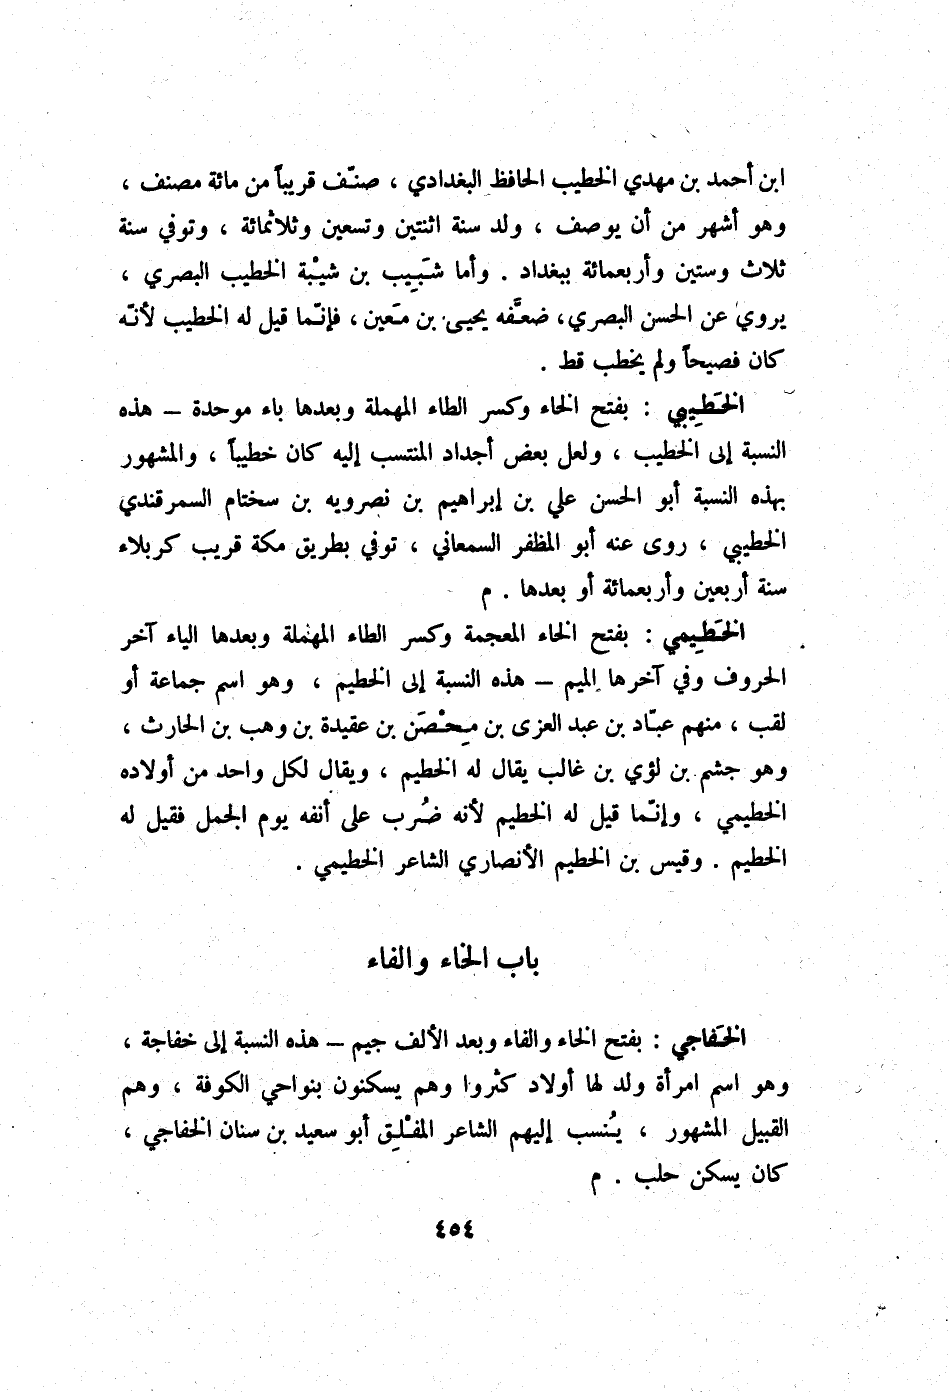 ابن أحمد بن مهدي الخطيب الحافظ البغدادي ، صنّف قريباً من مائة مصنف ،
وهو أشهر من أن يوصف ، ولد سنة اثنتين وتسعين وثلاثمائة ، وتوفي سنة
ثلاث وستين وأربعمائة ببغداد . وأما شَبِيب بن شيْبة الخطيب البصري ،
يروي عن الحسن البصري، ضعَّفه يحيى بن مَعين، فإنّما قيل له الخطيب لأنّه
كان فصيحاً ولم يخطب قط .
الخَطِيبي : بفتح الخاء وكسر الطاء المهملة وبعدها باء موحدة – هذه
النسبة إلى الخطيب ، ولعل بعض أجداد المنتسب إليه كان خطيباً ، والمشهور
بهذه النسبة أبو الحسن علي بن إبراهيم بن نصرويه بن سختام السمرقندي
الخطيبي ، روى عنه أبو المظفر السمعاني ، توفي بطريق مكة قريب كربلاء
سنة أربعين وأربعمائة أو بعدها . م
الخَطِيمي : بفتح الخاء المعجمة وكسر الطاء المهملة وبعدها الياء آخر
الحروف وفي آخرها الميم – هذه النسبة إلى الخطيم ، وهو اسم جماعة أو
لقب ، منهم عبّاد بن عبد العزى بن مِحْصَن بن عقيدة بن وهب بن الحارث ،
وهو جشم بن لؤي بن غالب يقال له الخطيم ، ويقال لكل واحد من أولاده
الخطيمي ، وإنّما قيل له الخطيم لأنه ضُرب على أنفه يوم الجمل فقيل له
الخطيم . وقيس بن الخطيم الأنصاري الشاعر الخطيمي .
باب الخاء والفاء
الخَفاجي : بفتح الخاء والفاء وبعد الألف جيم – هذه النسبة إلى خفاجة ،
وهو اسم امرأة ولد لها أولاد كثروا وهم يسكنون بنواحي الكوفة ، وهم
القبيل المشهور ، يُنسب إليهم الشاعر المفْلِق أبو سعيد بن سنان الخفاجي ،
كان يسكن حلب . م
٤٥٤